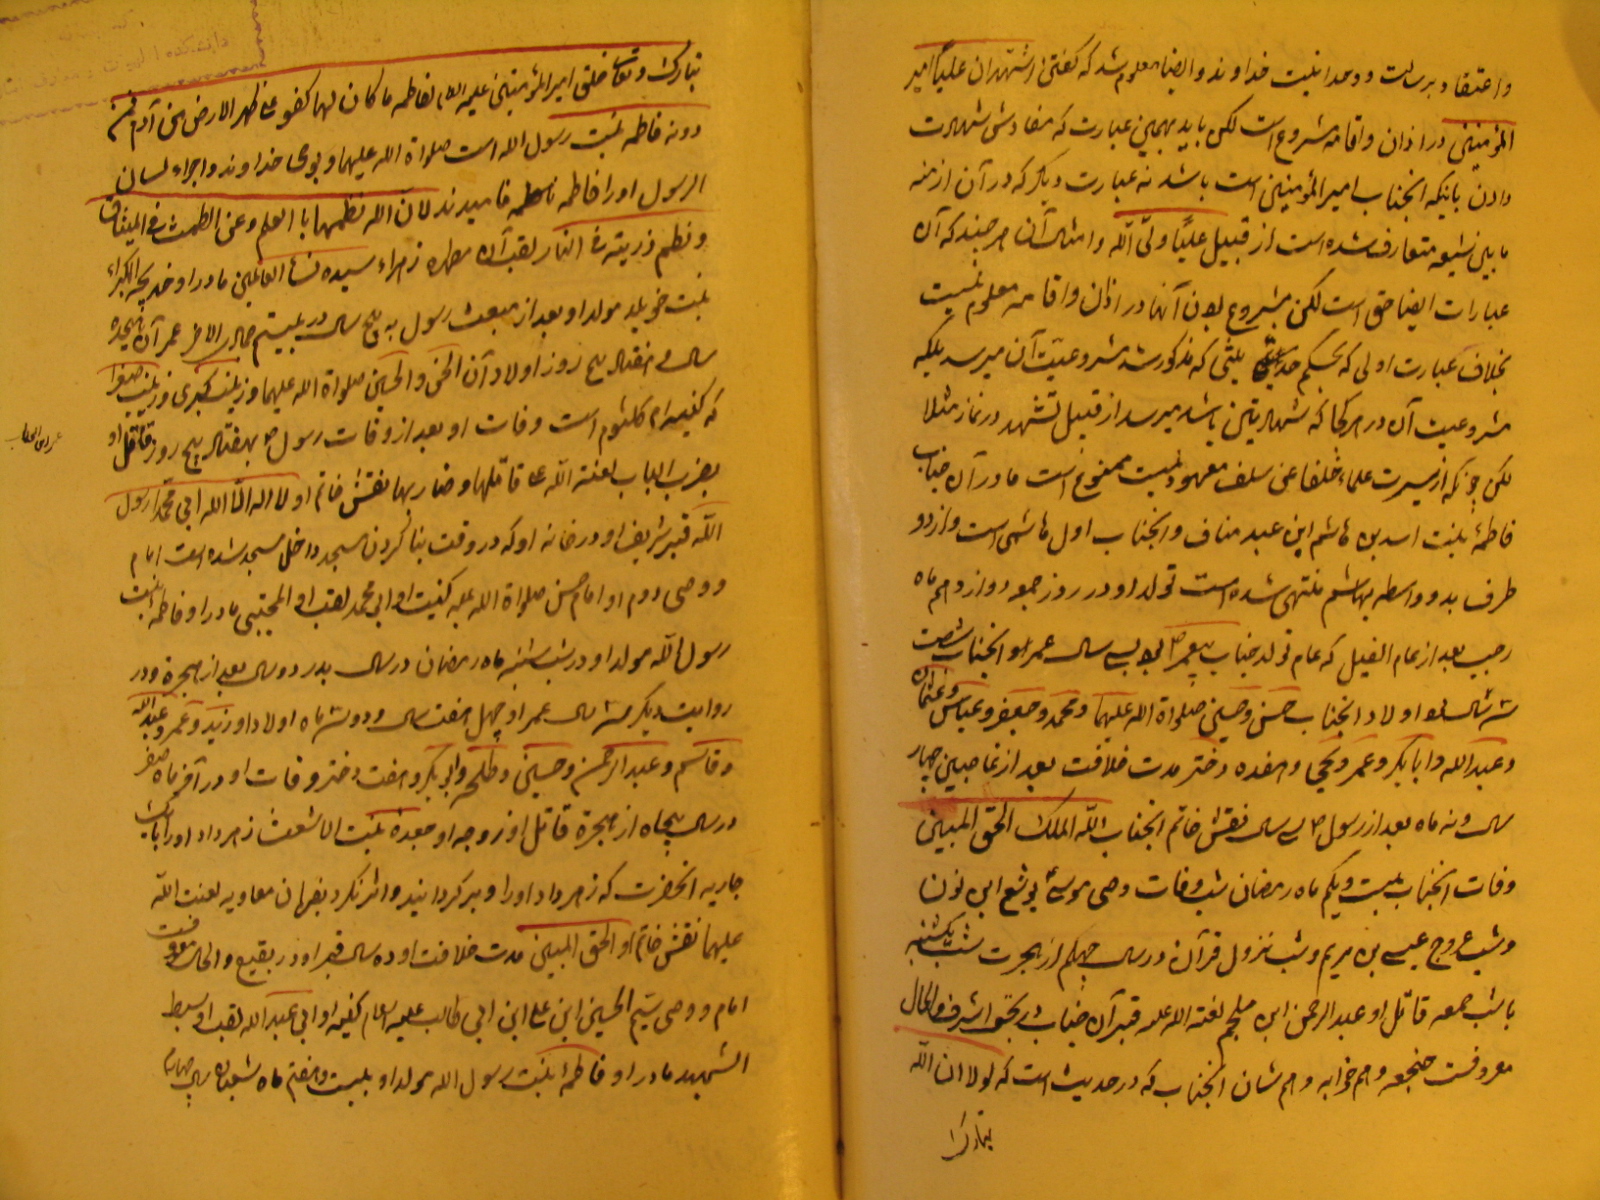 و اعتقاد برسالت و وحدانیت خداوند و ایضا معلوم شد که گفتن اشهد ان علیا امیر
المؤمنین در اذان و اقامه مشروع است لکن باید بهمین عبارت که مفادش شهادت
دادن باینکه انجناب امیر المؤمنین است باشد نه عبارت دیگر که در آن ازمنه
ما بین شیعه متعارف شده است از قبیل علیًا ولیّ الله و امثال آن هر چند که آن
عبارات ایضا حق است لکن مشروع بودن آنها در اذان و اقامه معلوم نیست
بخلاف عبارت اولی که بحکم حدیث که مذکور شد مشروعیت آن میرسد بلکه
مشروعیت آن در هر کجا که شهادتین باشد میرسد از قبیل تشهد در نماز مثلا
لکن چونکه از سیرت علماء خلفا عن سلف معهود نیست ممنوع است مادر آن جناب
فاطمهٔ بنت اسد بن هاشم ابن عبد مناف و انجناب اول هاشمی است و از دو
طرف بدو واسطه بهاشم منتهی شده است تولد او در روز جمعه دوازدهم ماه
رجب بعد از عام الفیل که عام تولد جناب پیغمبر ص بود بسی سال عمر او انجناب شصت
سه سال بود اولاد انجناب حسن و حسین صلواة الله علیهما و محمد و جعفر و عباس و عثمان
و عبد الله و ابابکر و عمر و یحیی و هفده دختر مدت خلافت بعد از غاصبین چهار
سال و نه ماه بعد از رسول ص سی سال نقش خاتم انجناب الله الملک الحق المبین
وفات انجناب بیست و یکم ماه رمضان شب وفات وصی موسی یوشع ابن نون
و شب عروج عیسی بن مریم و شب نزول قرآن در سال چهلم از هجرت شب یکشنبه
یا شب جمعه قاتل او عبد الرحمن ابن ملجم لعنة الله علیه قبر آن جناب در نجف اشرف و الحال
معروفست ضجعه و هم خوابه و هم شان انجناب که در حدیث است که لولا ان الله
تبارک
تبارک و تعالی خلق امیر المؤمنین علیه السلام لفاطمه ما کان لها کفو علی ظهر الارض من آدم فمن
دونه فاطمه بنت رسول الله است صلواة الله علیهما و بوحی خداوند و اجراء لسان
الرسول او را فاطمه نامیدند لان الله فطمها بالعلم و عن الطمث فی المیثاق
و فطم ذریته فی النار لقب آن مطهره زهراء سیده نساء العالمین مادر او خدیجة الکبراء
بنت خویلد مولد او بعد از مبعث رسول به پنج سال در بیستم جمادی الاخر عمر آن هیجده
سال و هفتاد پنج روز اولاد آن الحسن و الحسین صلواة الله علیهما و زینب کبری و زینب صغرا
که کنیه ام کلثوم است وفات او بعد از وفات رسول ص بهفتاد پنج روز قاتل او
عمر ابن الخطاب
بضرب الباب لعنة الله علی قاتلها و ضاربها نقش خاتم او لا اله الّا الله ابی محمّد رسول
الله قبر شریف او در خانه او که در وقت بنا کردن مسجد داخل مسجد شده است امام
و وصی دوم او امام حسن صلواة الله علیه کنیت او ابی محمد لقب او المجتبی مادر او فاطمه بنت
رسول الله مولد او در شب شنبه ماه رمضان در سال بدر دو سال بعد از هجرة و در
روایت دیگر سه سال عمر او چهل هفت سال و دو سه ماه اولاد او زید و عمر و عبد الله
و قاسم و عبد الرحمن و حسین و طلحه و ابی بکر و هفت دختر وفات او در آخر ماه صفر
در سال پنجاه از هجرة قاتل او زوجه او جعده بنت الاشعث زهر داد او را
جاریه انحضرت که زهر داد او را و برگردانید و اثر نکرد بفرمان معاویه لعنت الله
علیهما نقش خاتم او الحق المبین مدت خلافت او ده سال قبر او در بقیع و الحال معروفست
امام و وصی سیم الحسین ابن علی ابن ابی طالب علیه السلام کنیه او ابی عبد الله لقب او سبط
الشهید مادر او فاطمهٔ بنت رسول الله مولد او بیست و هفتم ماه شعبان سال چهارم